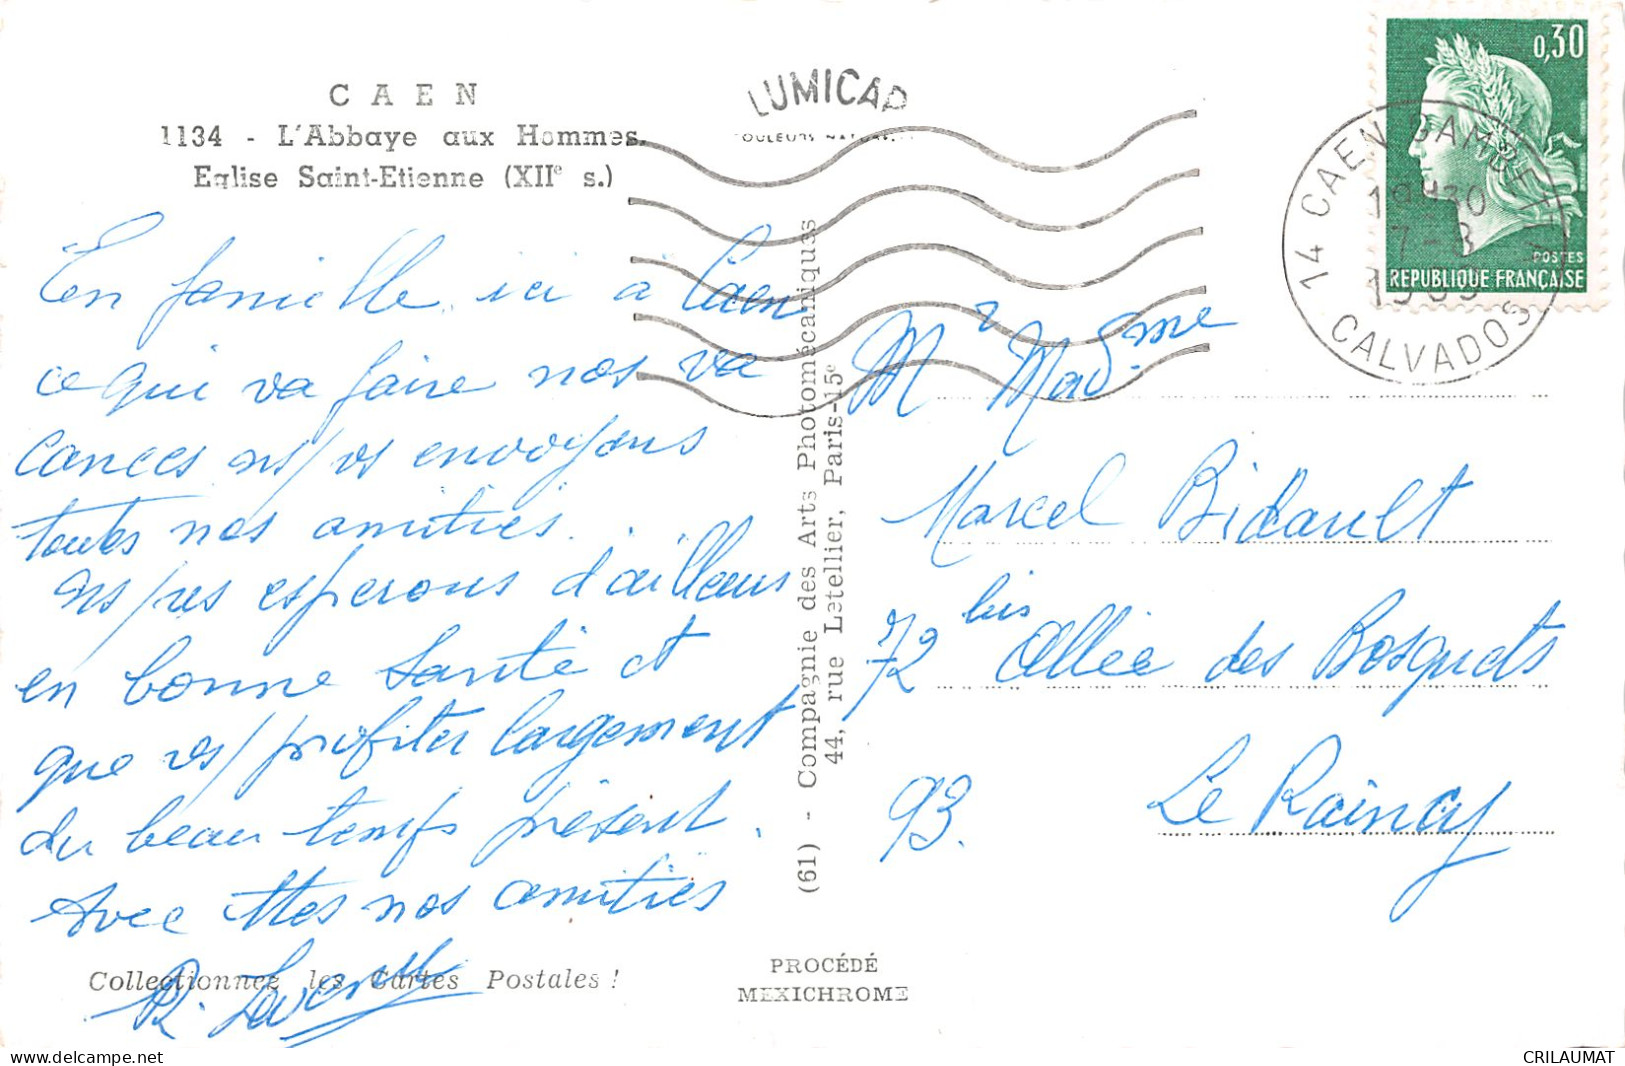 CAEN
1134 - L'Abbaye aux Hommes.
Eglise Saint-Etienne (XIIe s.)
LUMICAP
COULEURS NATURELLES
En famille ici à Caen
ce qui va faire nos va
cances ns/vs envoyons
toutes nos amitiés.
ns/vs esperons d'ailleurs
en bonne santé et
que vs/profitez largement
du beau temps présent.
Avec ttes nos amitiés
R.
Collectionnez les Cartes Postales !
(61) - Compagnie des Arts Photomécaniques
44, rue Letellier, Paris-15e
PROCÉDÉ
MEXICHROME
0,30
POSTES
REPUBLIQUE FRANÇAISE
14 CAEN GAMBETTA
19H30
7-8
CALVADOS
Mr Madame
Marcel Bidault
72 bis Allée des Bosquets
93. Le Raincy
www.delcampe.net
CRILAUMAT